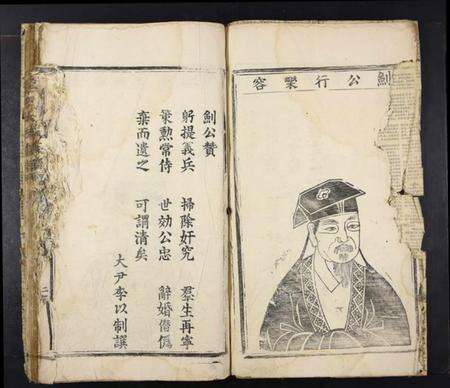 釗公行樂容
釗公贊
躬提義兵 掃除奸宄 羣生再寧
策勲常侍 世効公忠 辭婚僭偽
棄而遺之 可謂清矣
大尹李以制譔